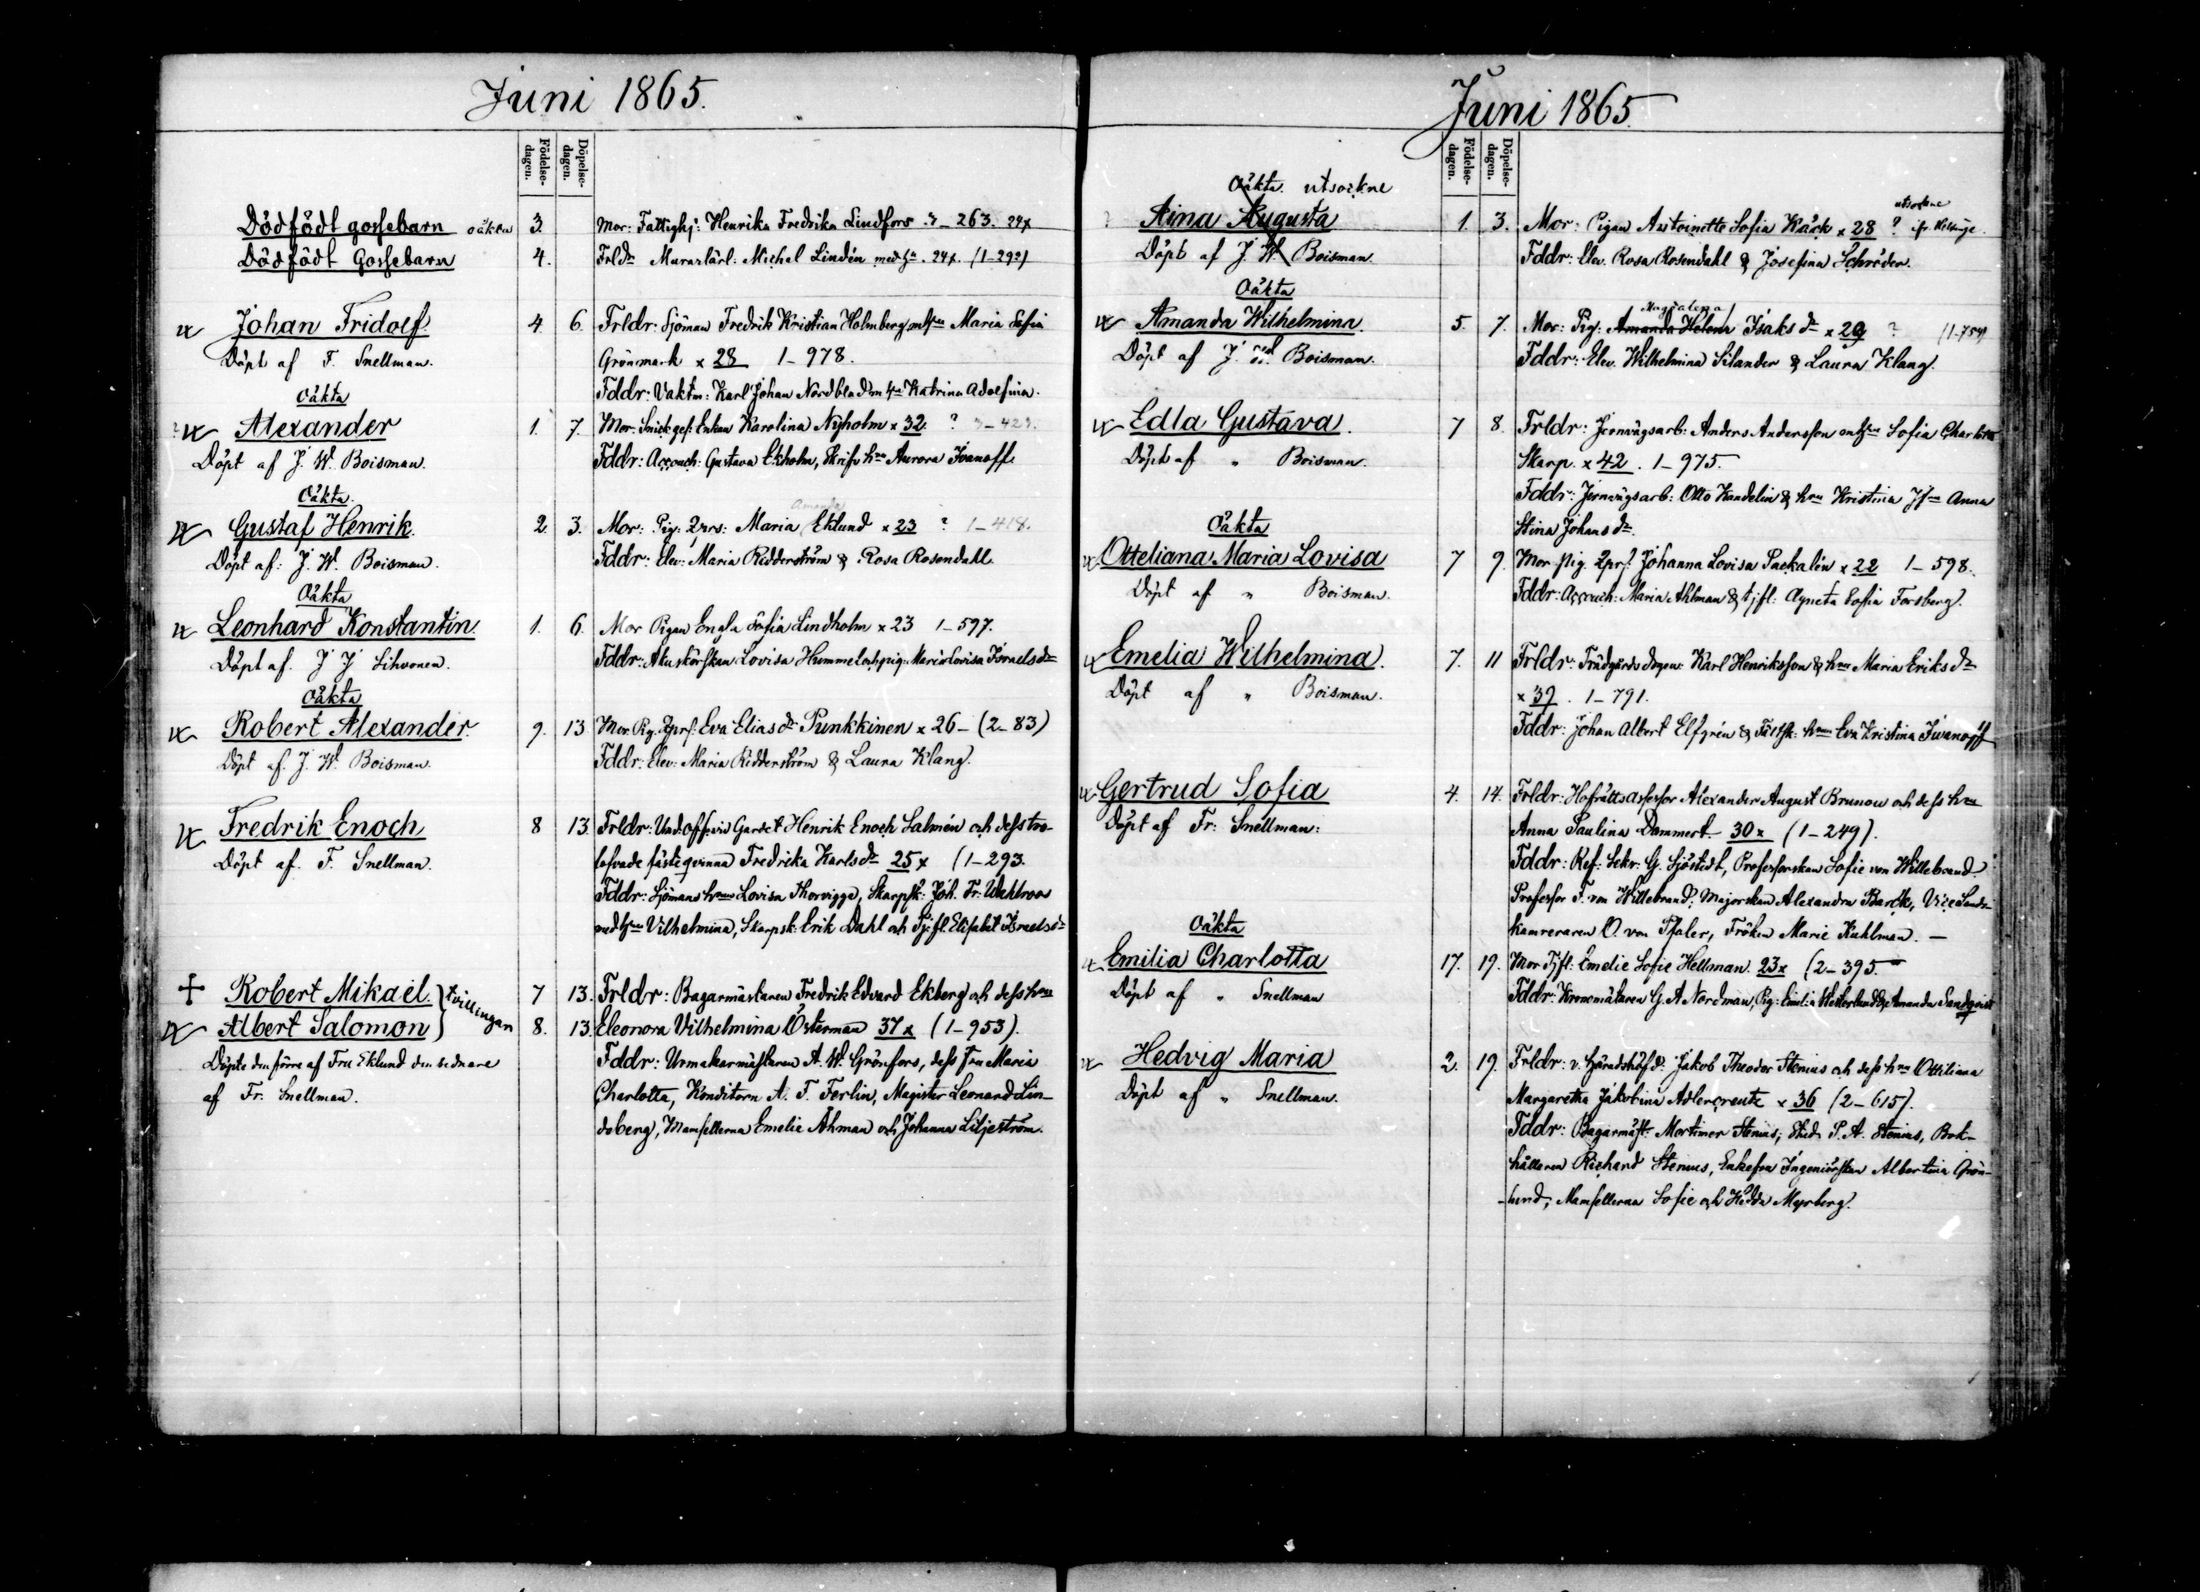 Juni 1865.
Födelse-dagen.
Döpelse-dagen.
Dödfödt gossebarn oäkta 3. Mor: Fattighj: Henrika Fredrika Lindfors 3–263. 24x
Dödfödt Gossebarn 4. Frldr Murarlärl: Michel Lindén med hu. 24x. (1–292)
Johan Fridolf. 4. 6. Frldr: Sjöman Fredrik Kristian Holmberg m hun Maria Sofia
Döpt af F. Snellman. Grönmark x 28 1–978.
Fddr: Vaktm: Karl Johan Nordblad m hu Katrina Adolfina.
Oäkta
Alexander 1. 7. Mor: Snick ges: Enkan Karolina Nyholm x 32. ? 3–423.
Döpt af J. W. Boisman. Fddr: Accouch: Gustava Ekholm, Skrifv hru Aurora Ivanoff.
Oäkta.
Amanda
Gustaf Henrik. 2. 3. Mor: Pig: 2prs: Maria Eklund x 23 ? 1–418.
Döpt af: J. W. Boisman. Fddr: Elev: Maria Ridderström & Rosa Rosendahl.
Oäkta
Leonhard Konstantin. 1. 6. Mor Pigan Engla Sofia Lindholm x 23 1–597.
Döpt af. J J Sihvonen. Fddr: Lovisa Hummel och pig: Maria Lovisa Israelsdr
Oäkta
Robert Alexander. 9. 13 Mor. Pig. 2prs: Eva Eliasdr Punkkinen x 26– (2–83)
Döpt af. J. W. Boisman. Fddr: Elev: Maria Ridderström & Laura Klang.
Fredrik Enoch 8 13. Frldr: Und:offr vid Gardet Henrik Enoch Salmén och dess tro-
Döpt af. F. Snellman. lofvade fästeqvinna Fredrika Karlsdr 25x (1–293.
Fddr: Sjömans hrun Lovisa Thorvigge, Skarpsk: Joh. Fr. Wahlroos
med hun Vilhelmina, Skarpsk: Erik Dahl och Tj:fl. Elisabet Israelsdr
Robert Mikael. } tvillingar 7 13. Frldr: Bagarmästaren Fredrik Edvard Ekberg och dess hru
Albert Salomon } 8. 13. Eleonora Vilhelmina Österman 37x (1–953).
Döpte den förre af Fru Eklund den sednare Fddr: Urmakarmästaren A. W. Grönfors, dess fru Maria
af Fr. Snellman. Charlotta, Konditorn A. F. Ferlin, Magister Leonard Lin-
deberg, Mamsellerna Emelie Åhman och Johanna Liljeström.
Juni 1865.
Födelse-dagen.
Döpelse-dagen.
Oäkta. utsockne
utsockne
Aina Augusta 1. 3. Mor: Pigan Antoinette Sofia Käck x 28 ? ifr. Helsinge.
Döpt af J. W. Boisman. Fddr: Elev. Rosa Rosendahl & Josefina Schröder.
Oäkta
Magdalena
Amanda Wilhelmina. 5. 7. Mor: Pig: Amanda Helena Isaksdr x 29 ? (1–754)
Döpt af J. W. Boisman. Fddr: Elev. Wilhelmina Silander & Laura Klang.
Edla Gustava. 7 8. Frldr: Jernvägsarb: Anders Andersson m hun Sofia Charlotta
Döpt af " Boisman. Skarp. x 42. 1–975.
Fddr: Jernvägsarb: Otto Kandelin & hru Kristina Anna
Stina Johansdr.
Oäkta
Otteliana Maria Lovisa 7 9. Mor. Pig. 2prs: Johanna Lovisa Packalén x 22 1–598.
Döpt af " Boisman. Fddr: Accouch: Maria Ahlman & tj fl: Agneta Sofia Forsberg.
Emelia Wilhelmina. 7. 11 Frldr: Trädgårds Karl Henriksson & hru Maria Eriksdr
Döpt af " Boisman. x 39. 1–791.
Fddr: Johan Albert Elfgrén & hrun Eva Kristina Iwanoff
Gertrud Sofia 4. 14. Frldr: Hofrättsassessor Alexander August Brunow och dess hru
Döpt af Fr: Snellman: Anna Paulina Dammert. 30x (1–249).
Fddr: Ref: Sekr: G. Sjöstedt, Professorskan Sofie von Willebrand.
Professor F. von Willebrand, Majorskan Alexandra Barck, Vice Lands-
kamreraren O. von Pfaler, Fröken Marie Kuhlman. —
Oäkta
Emilia Charlotta 17. 19. Mor Tjfl: Emelie Sofie Hellman. 23x (2–395.
Döpt af " Snellman Fddr: Kronomätaren G. A Nordman, Pig: Emilia Westerlund & Amanda Sandqvist
Hedvig Maria 2. 19. Frldr: v. Häradshöfd: Jakob Theodor Stenius och dess hru Ottiliana
Döpt af " Snellman. Margaretha Jakobina Adlercreutz x 36 (2–615).
Fddr: Bagarmäst: Mortimer Stenius, Stud: P. A. Stenius, Bok-
hållaren Richard Stenius, Enkefru Ingeniörskan Albertina Grön-
lund, Mamsellerna Sofie och Hedda Myrberg.